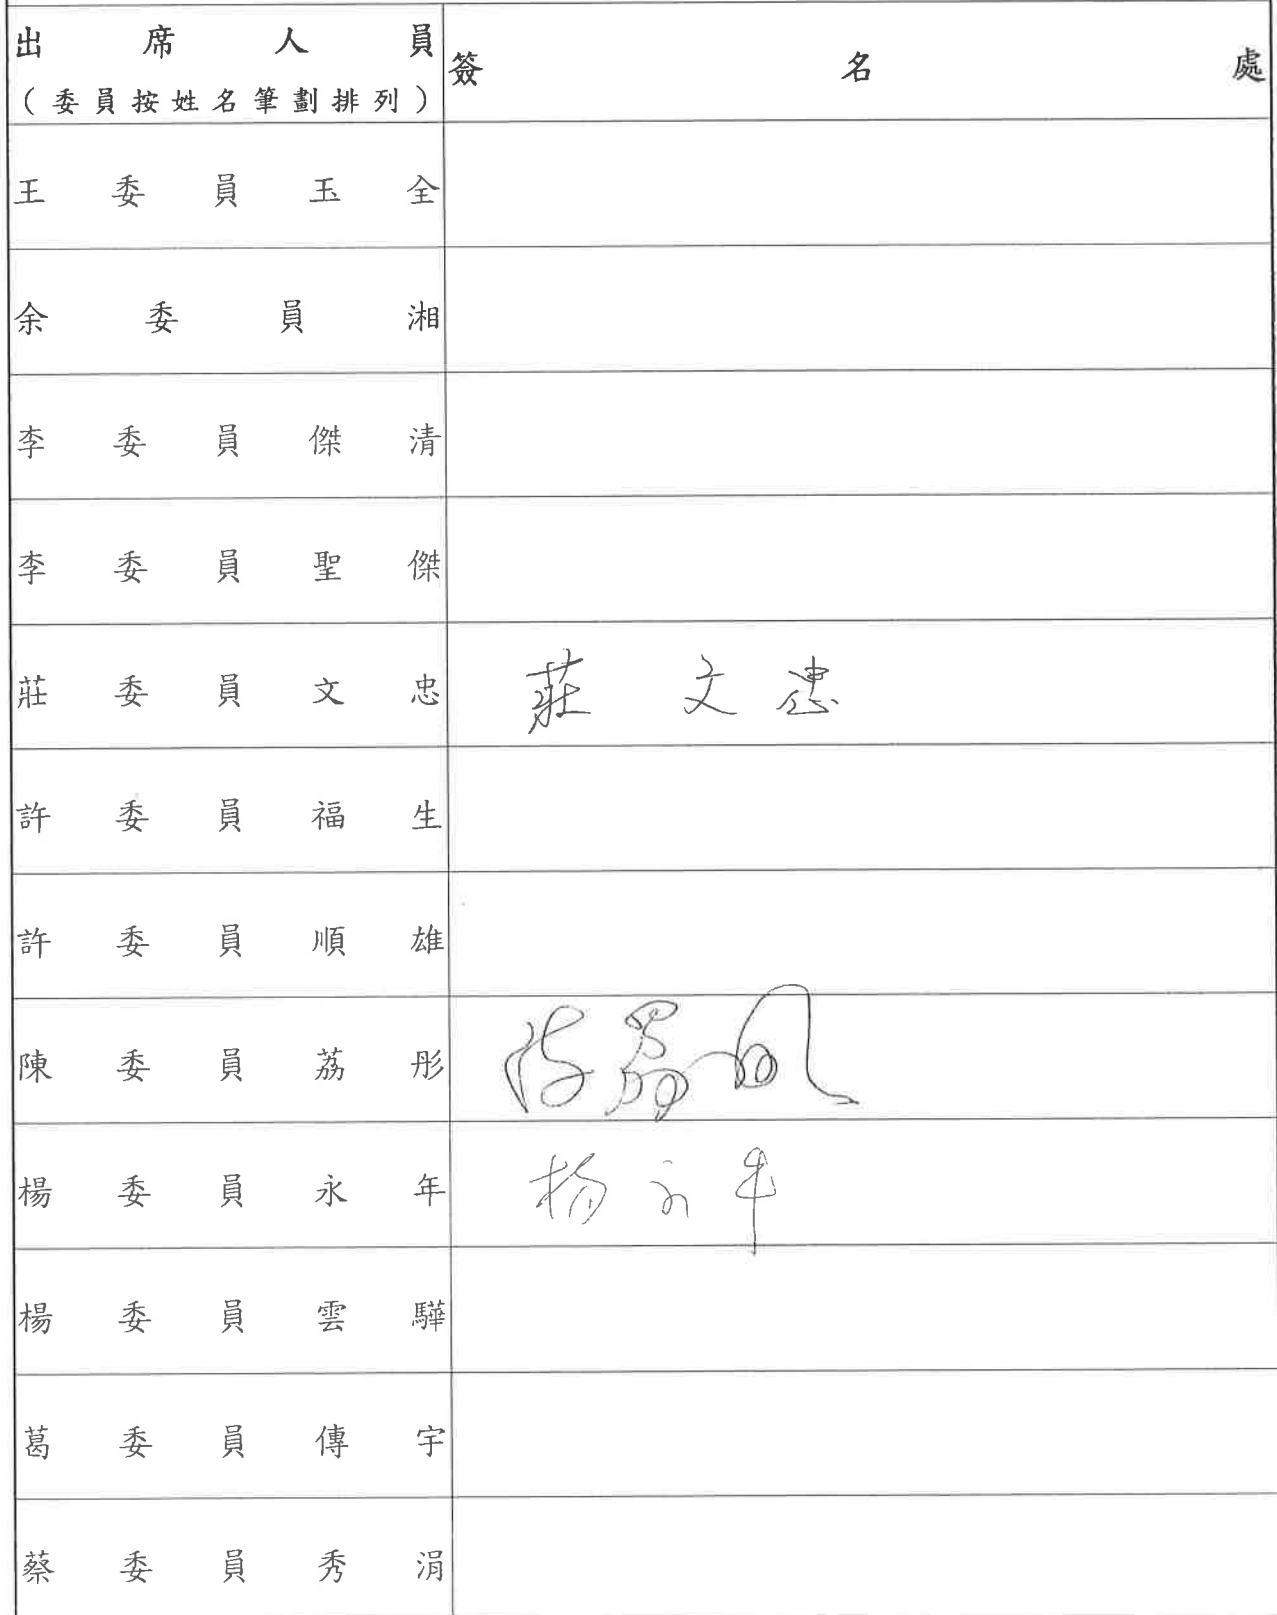 出席人員
(委員按姓名筆劃排列)
簽名處
王委員玉全
余委員湘
李委員傑清
李委員聖傑
莊委員文忠 莊文忠
許委員福生
許委員順雄
陳委員荔彤
楊委員永年 楊永年
楊委員雲驊
葛委員傳宇
蔡委員秀涓